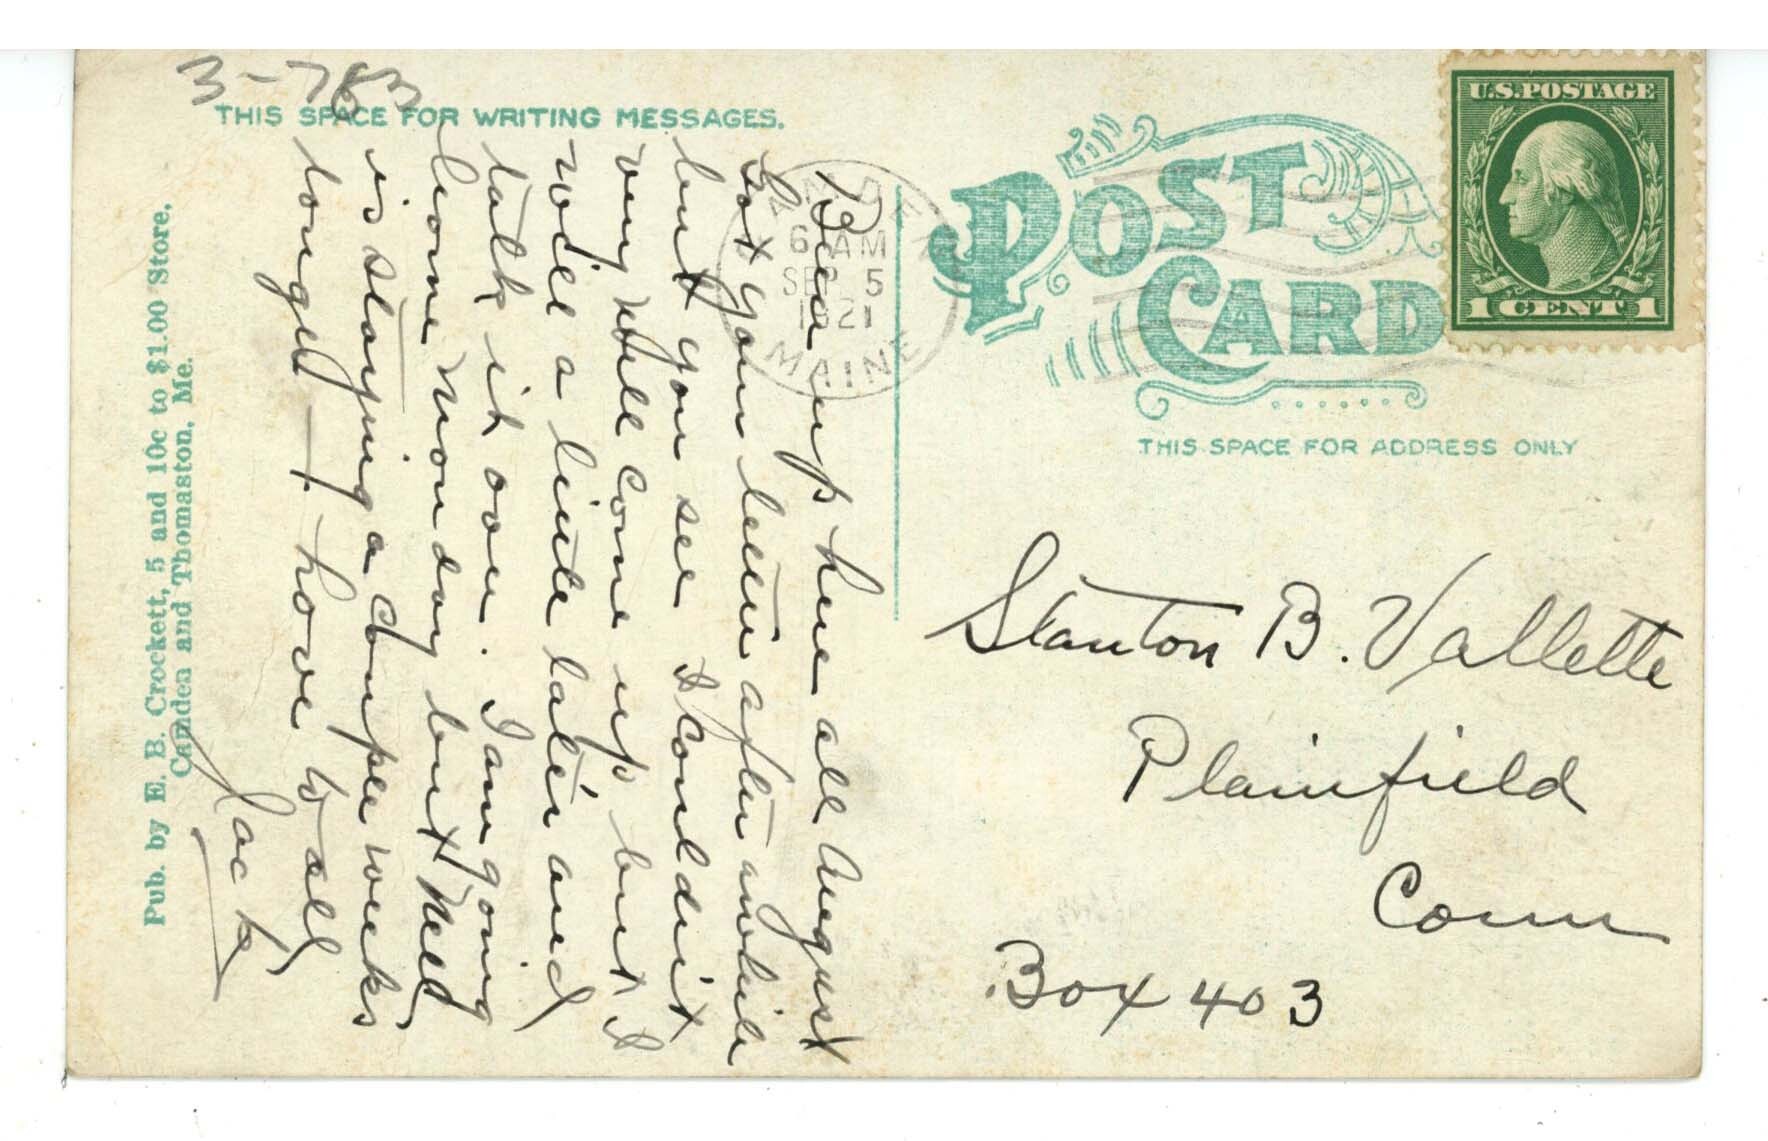 3-763
THIS SPACE FOR WRITING MESSAGES.
Been up here all August
Got your letter after awhile
but you see I couldn't
very well come up but I
will a little later and
talk it over. I am going
home Monday but Nell
is staying a couple weeks
longer. + love to all
Jack
Pub. by E. B. Crockett, 5 and 10c to $1.00 Store,
Camden and Thomaston, Me.
CAMDEN
6 AM
SEP 5
1921
MAINE
POST
CARD
U.S. POSTAGE
1 CENT 1
THIS SPACE FOR ADDRESS ONLY
Stanton B. Vallette
Plainfield
Conn
Box 403